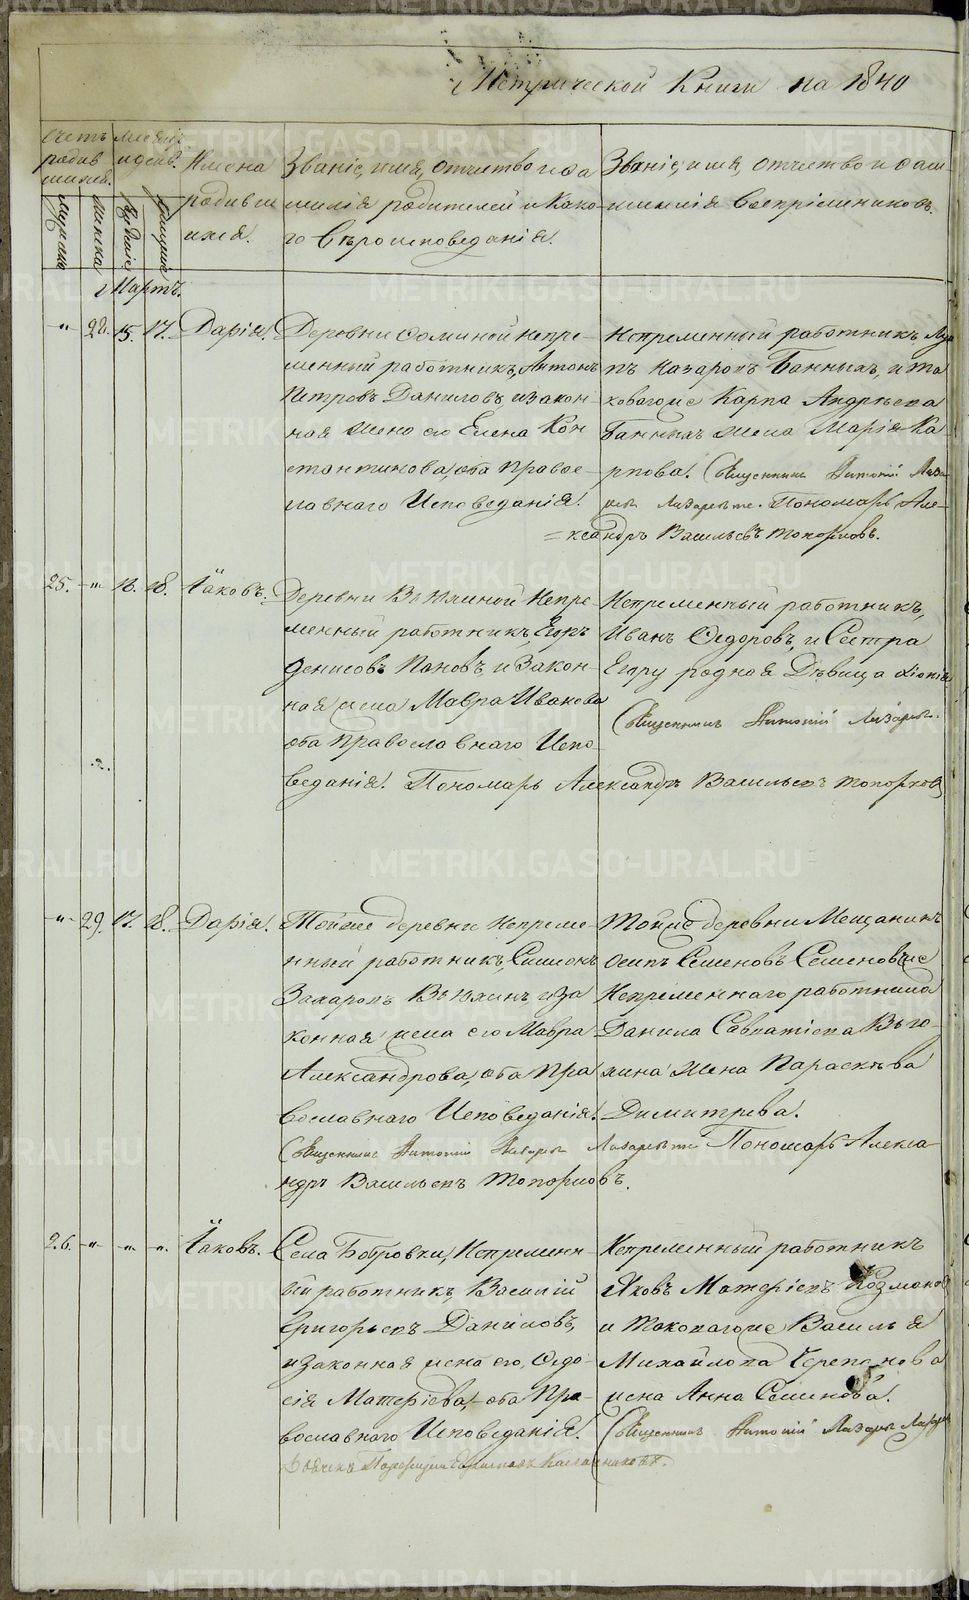 Метрической Книги на 1840
Счетъ родившихся.
Мѣсяцъ и день.
Имена родившихся.
Званіе, имя, отчество и фамилія родителей и какого вѣроисповеданія.
Званіе, имя, отчество и фамилія Воспріемниковъ.
мужеска
женска
рожденіе
крещеніе
Мартъ.
"
28.
15.
17.
Дарія.
Деревни Соминой непре-
менный работникъ, Антонъ
Петровъ Даниловъ и закон-
ная жена его Елена Кон
стантинова, оба Правос-
лавнаго Исповеданія.
Непременный работникъ
пъ Назаровъ Банныхъ, и та
ковагоже Карпа Андреева
Банныхъ жена Марія Ка
рпова. Священникъ Антоній Лаза
ревъ Лазаревъ. Пономарь Але-
=ксандръ Васильевъ Топорковъ.
25.
"
16.
18.
Іаковъ.
Деревни Вьюхиной Непре
менный работникъ, Егоръ
Денисовъ Пановъ, и Закон-
ная жена Мавра Иванова
оба Православнаго Испо-
веданія. Пономарь Александръ Васильевъ Топорковъ
Непременный работникъ,
Иванъ Федоровъ, и Сестра
Егору родная Дѣвица
Священникъ Антоній Лазаревъ.
"
29.
17.
18.
Дарія.
Тойже деревни Непреме-
нный работникъ, Симіонъ
Захаровъ Вьюхинъ, и за
конная жена его Мавра
Александрова, оба Пра
вославнаго Исповеданія.
Тойже деревни Мещанинъ
Осипъ Семеновъ
Непременнаго работника
Данила Савватіева Вью-
хина жена Параскѣва
Димитрева.
Священникъ Антоній Лазаревъ Лазаревъ Пономарь Алекса-
ндръ Васильевъ Топорковъ.
26.
"
"
"
Іаковъ.
Села Бобровки, Непремен-
ный работникъ, Василій
Григорьевъ Даниловъ,
и Законная жена его, Федо-
сія Матфіева, оба Пра-
вославнаго Исповеданія.
Непременный работникъ
Яковъ Матфіевъ
и таковагоже Василья
Михайлова Черепанова
жена Анна Семенова.
Священникъ Антоній Лазаревъ
METRIKI.GASO-URAL.RU